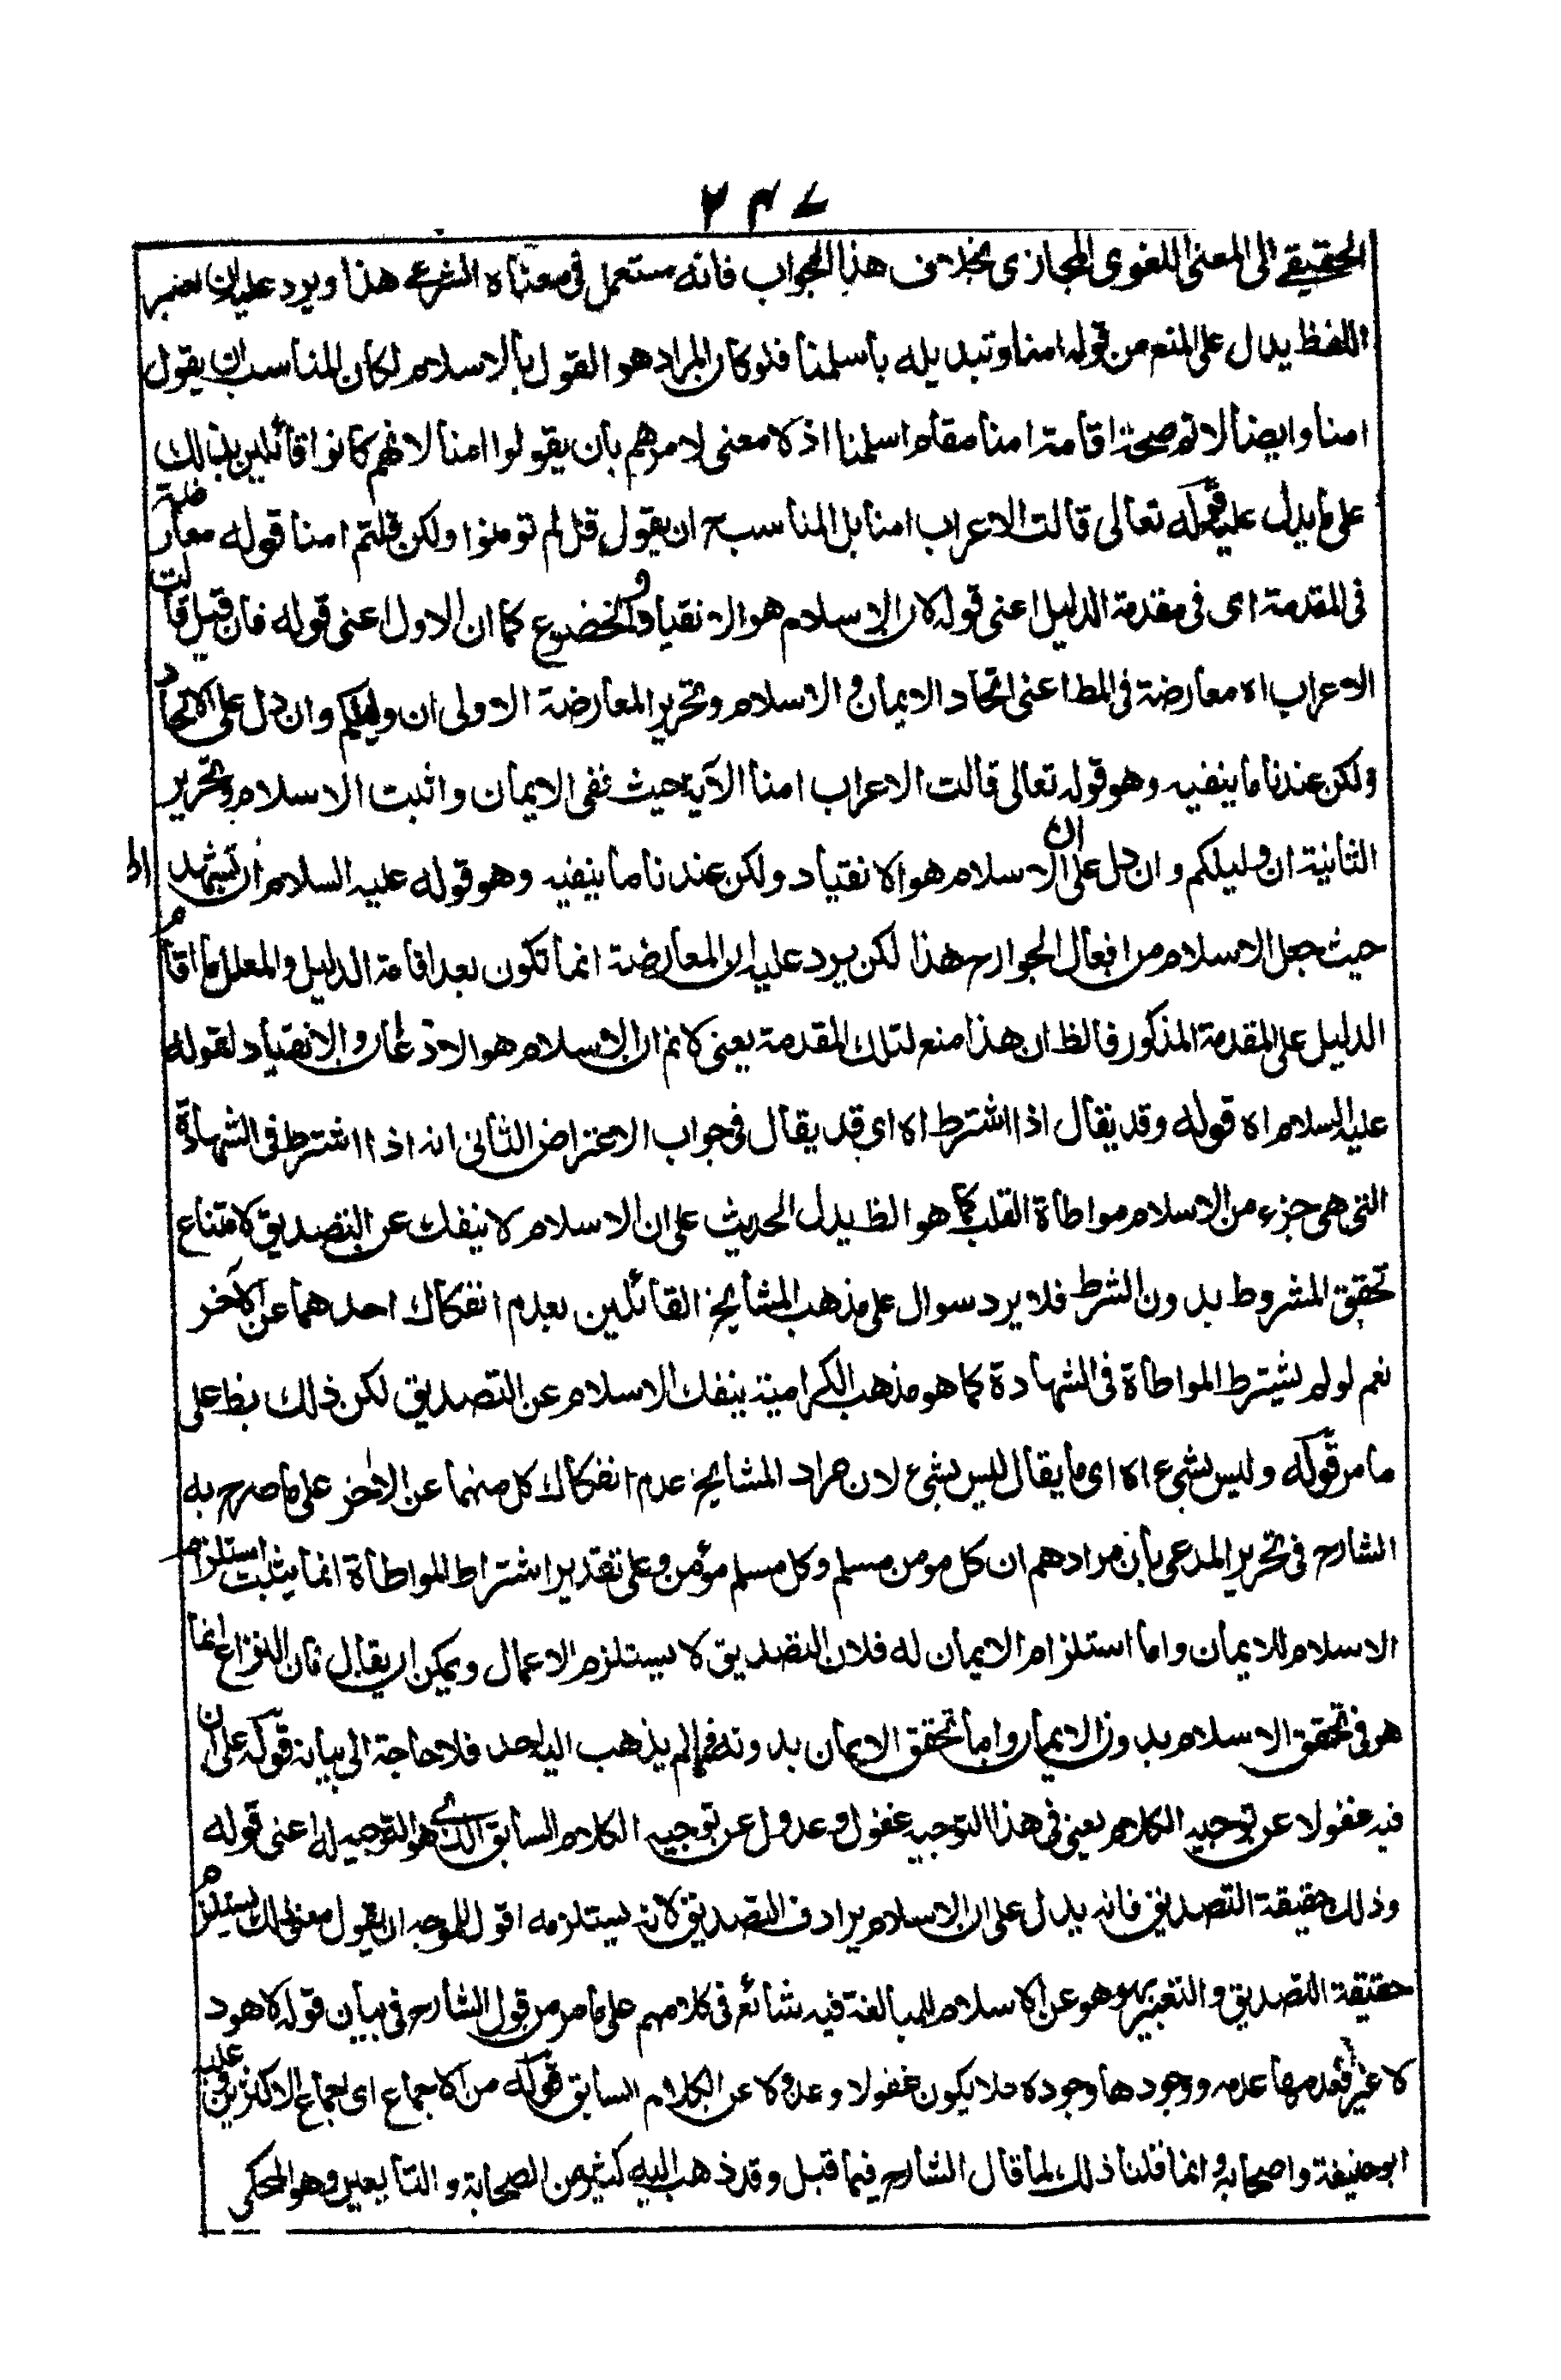 ٢٤٧
الحقيقي الى المعنى اللغوى المجازى بخلاف هذا الجواب فانه مستعمل فى معناه الشرعى هذا ويرد عليه ان تغيير
اللفظ يدل على المنع من قوله امنا وتبديله باسلمنا فلو كان المراد هو القول بالاسلام لكان المناسب ان يقول
امنا وايضا لا نم صحة اقامة امنا مقام اسلمنا اذ لا معنى لامرهم بان يقولوا امنا لانهم كانوا قائلين بذالك
على ما يدل عليه قوله تعالى قالت الاعراب امنا بل المناسب ح ان يقول قل لم تومنوا ولكن قلتم امنا قوله معارضة
فى المقدمة اى فى مقدمة الدليل اعنى قوله لان الاسلام هو الانقياد والخضوع كما ان الاول اعنى قوله فان قيل قالت
الاعراب اه معارضة فى المط اعنى اتحاد الايمان والاسلام وتحرير المعارضة الاولى ان دليلكم وان دل على الاتحاد
ولكن عندنا ما ينفيه وهو قوله تعالى قالت الاعراب امنا الآية حيث نفى الايمان واثبت الاسلام وتحرير
الثانية ان دليلكم وان دل على ان الاسلام هو الانقياد ولكن عندنا ما ينفيه وهو قوله عليه السلام ان تشهد الخ
حيث جعل الاسلام من افعال الجوارح هذا لكن يرد عليه ان المعارضة انما تكون بعد اقامة الدليل والمعلل ما اقام
الدليل على المقدمة المذكور فالظ ان هذا منع لتلك المقدمة يعنى لا نم ان الاسلام هو الاذعان والانقياد لقوله
عليه السلام اه قوله وقد يقال اذا اشترط اه اى قد يقال فى جواب الاعتراض الثانى انه اذا اشترط فى الشهادة
التى هى جزء من الاسلام مواطاة القلب كما هو الظ يدل الحديث على ان الاسلام لا ينفك عن التصديق لامتناع
تحقق المشروط بدون الشرط فلا يرد سوال على مذهب المشايخ القائلين بعدم انفكاك احدهما عن الآخر
نعم لو لم يشترط المواطاة فى الشهادة كما هو مذهب الكرامية ينفك الاسلام عن التصديق لكن ذلك بط على
ما مر قوله وليس بشىء اه اى ما يقال ليس بشىء لان مراد المشايخ عدم انفكاك كل منهما عن الاخر على ما صرح به
الشارح فى تحرير المدعى بان مرادهم ان كل مومن مسلم وكل مسلم مؤمن وعلى تقدير اشتراط المواطاة انما يثبت استلزام
الاسلام للايمان واما استلزام الايمان له فلا لان التصديق لا يستلزم الاعمال ويمكن ان يقال بان النزاع انما
هو فى تحقق الاسلام بدون الايمان واما تحقق الايمان بدونه فمما لم يذهب اليه احد فلا حاجة الى بيانه قوله على ان
فيه غفولا عن توجيه الكلام يعنى فى هذا التوجيه غفول وعدول عن توجيه الكلام السابق الذى هو التوجيه له اعنى قوله
وذلك حقيقة التصديق فانه يدل على ان الاسلام يرادف التصديق لانه يستلزمه اقول للموجه ان يقول معنى ذلك يستلزم
حقيقة التصديق والتعبير بهو هو عن الاسلام للمبالغة فيه شائع فى كلامهم على ما مر من قول الشارح فى بيان قوله لا هو و
لا غيره فعدمها عدمه ووجودها وجوده فلا يكون غفولا وعدولا عن الكلام السابق قوله من الاجماع اى اجماع الاكثرين وعليه
ابو حنيفة واصحابه وانما قلنا ذلك لما قال الشارح فيما قبل وقد ذهب اليه كثير من الصحابة والتابعين وهو المحكى